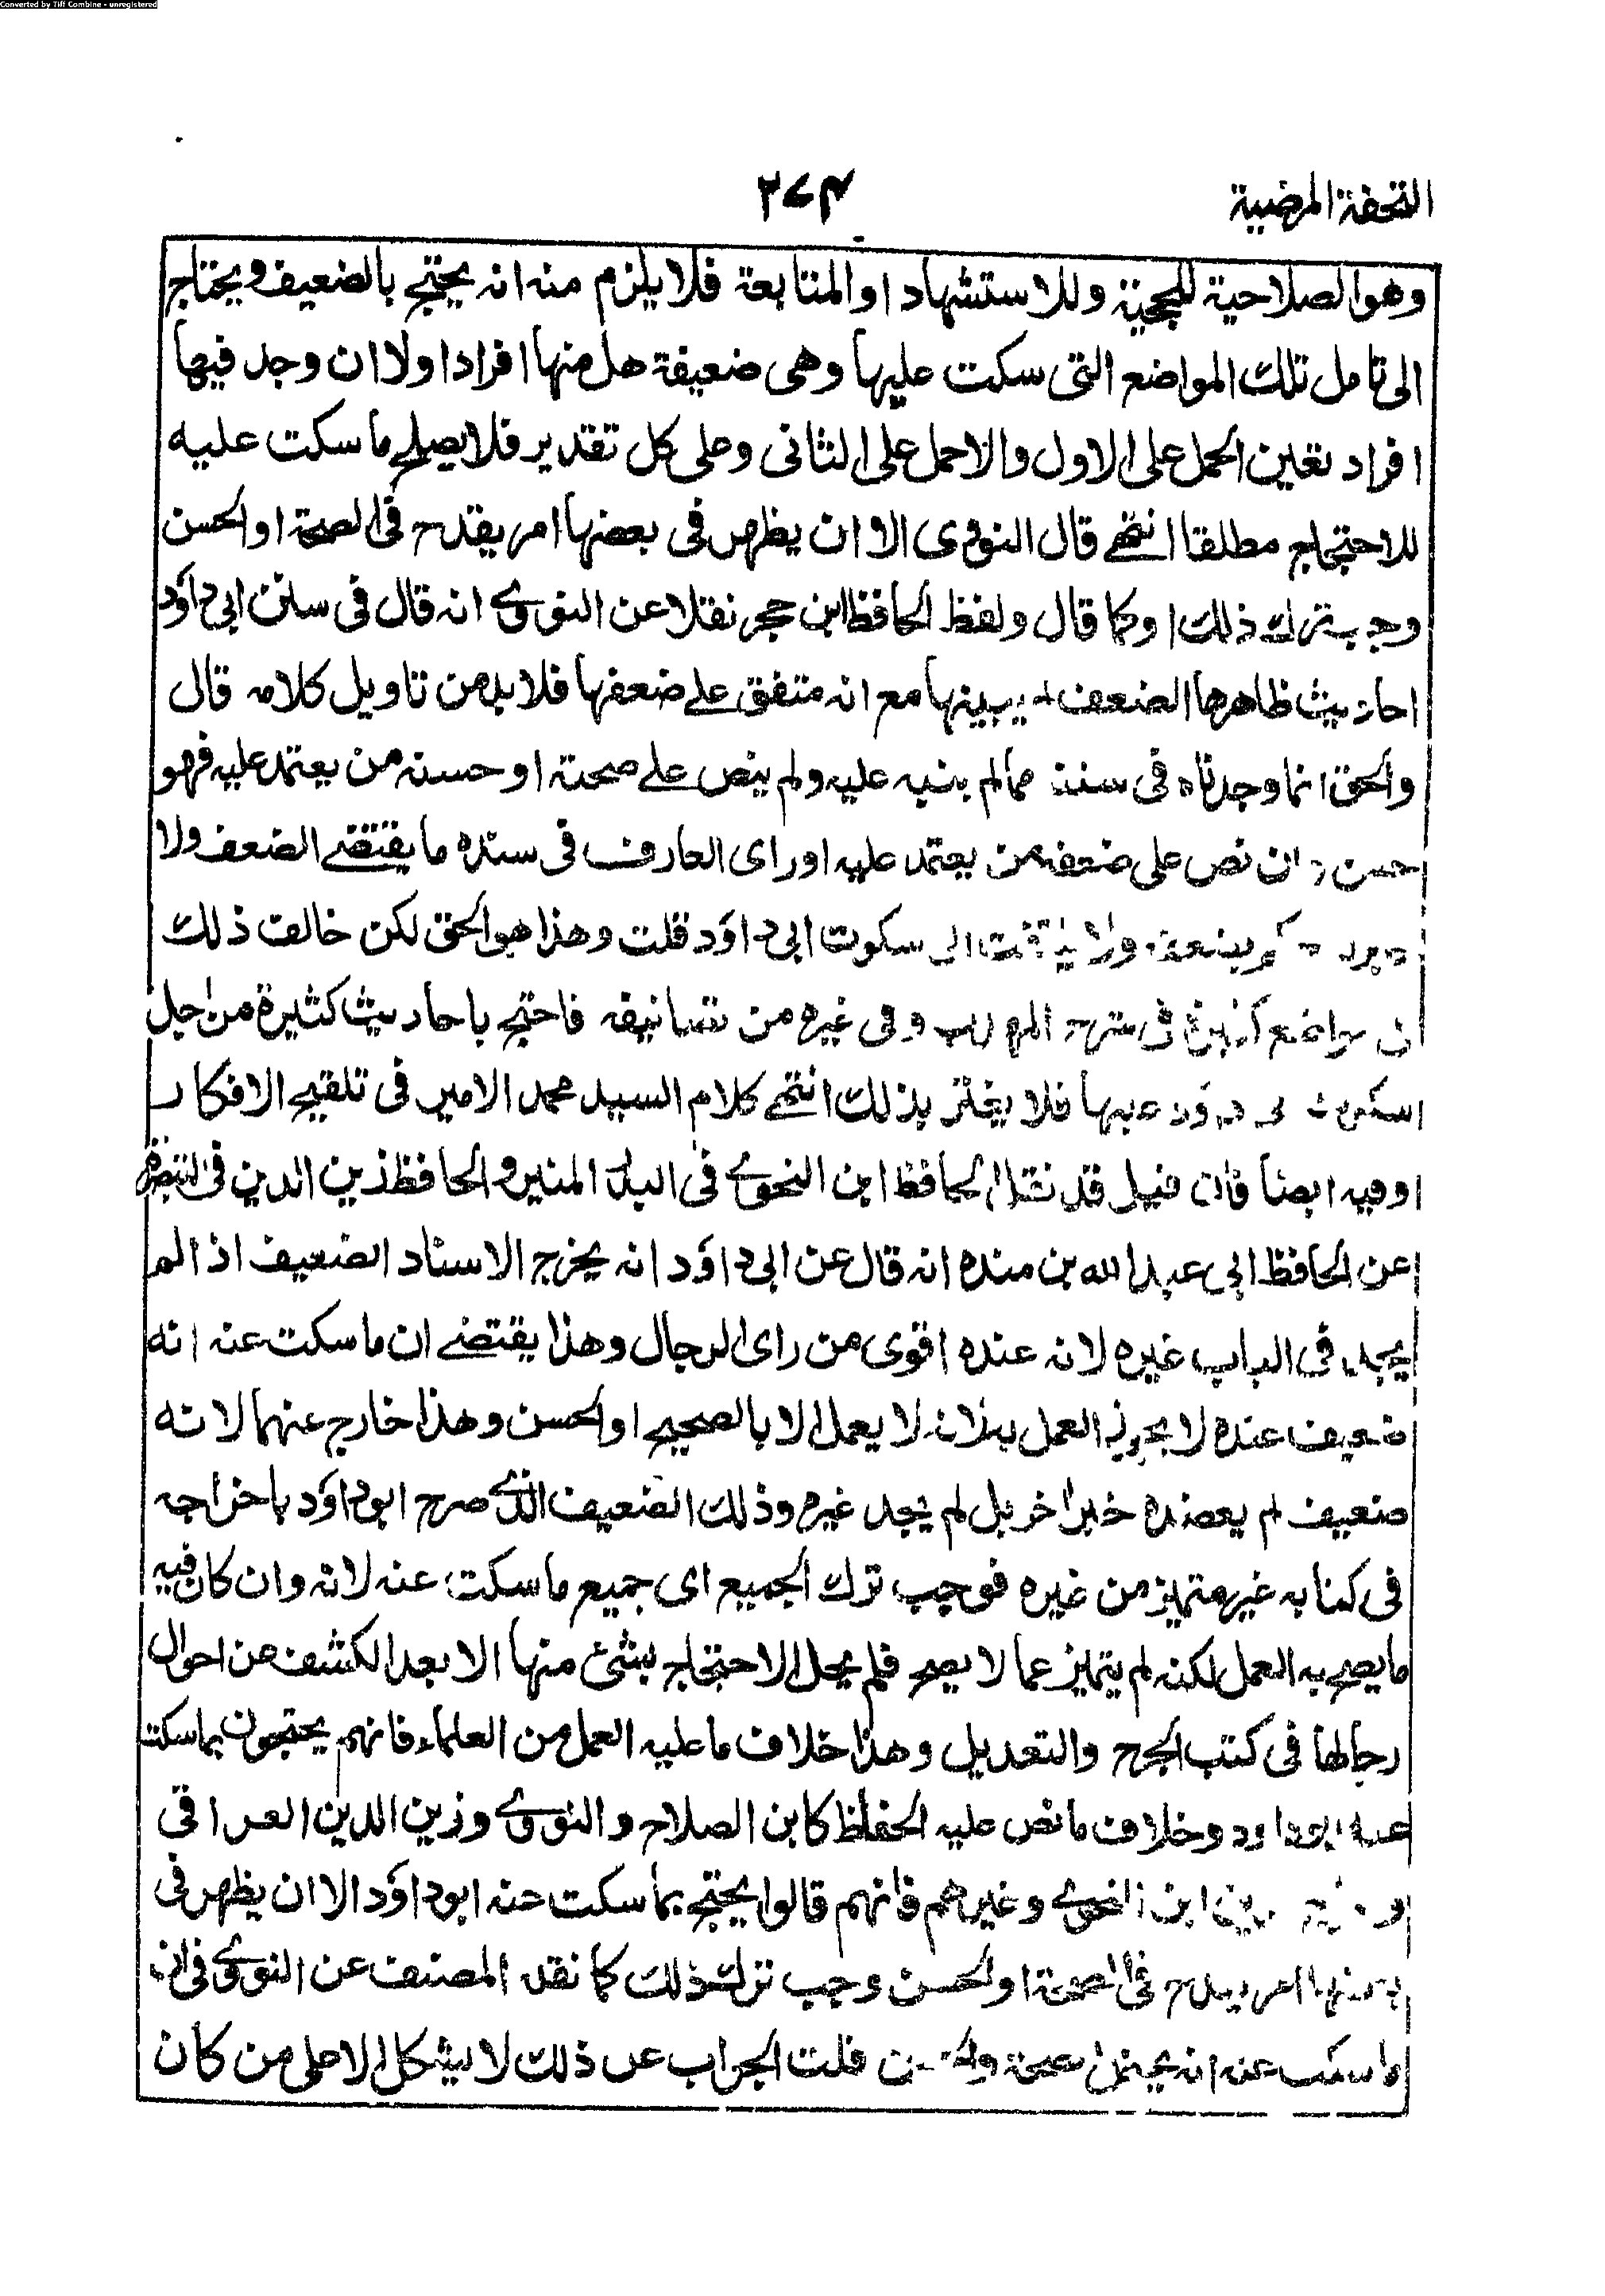 Converted by Tiff Combine - unregistered
التحفة المرضية
٢٧٤
وهو الصلاحية للحجية وللاستشهاد او المتابعة فلا يلزم منه انه يحتج بالضعيف ويحتاج
الى تامل تلك المواضع التى سكت عليها وهى ضعيفة هل منها افراد اولا ان وجد فيها
افراد تعين الحمل على الاول والا حمل على الثانى وعلى كل تقدير فلا يصلح ما سكت عليه
للاحتجاج مطلقا انتهے قال النووى الا ان يظهر فى بعضها امر يقدح فى الصحة او الحسن
وجب ترك ذلك او كما قال ولفظ الحافظ ابن حجر نقلا عن النووے انه قال فى سنن ابى داؤد
احاديث ظاهرها الضعف يبينها مع انه متفق علے ضعفها فلا بد من تاويل كلامه قال
والحق انما وجدناه فى سننه مما لم يبنيه عليه ولم ينص علے صحته او حسنه من يعتمد عليه فهو
حسن وان نص على ضعفه من يعتمد عليه اوراى العارف فى سنده ما يقتضے الضعف ولا
ولا يلتفت الى سكوت ابى داؤد قلت وهذا هو الحق لكن خالف ذلك
فى مواضع كثيرة فى شرح المهذب وفى غيره من تصانيفه فاحتج باحاديث كثيرة من اجل
سكوت ابى داؤد عليها فلا يغتر بذلك انتهے كلام السيد محمد الامير فى تلقيح الافكار
وفيه ايضا فان قيل قد نقل الحافظ ابن النحوے فى البدر المنير والحافظ زين الدين فى التبصرة
عن الحافظ ابى عبد الله بن منده انه قال عن ابى داؤد انه يخرج الاسناد الضعيف اذا لم
يجد فى الباب غيره لانه عنده اقوى من راى الرجال وهذا يقتضے ان ما سكت عنه انه
ضعيف عنده لا يجوز العمل به لانه لا يعمل الا بالصحيح او الحسن وهذا خارج عنهما لانه
ضعيف لم يعضده خبر اخر بل لم يجد غيره وذلك الضعيف الذے صرح ابوداؤد باخراجه
فى كتابه غير متميز من غيره فوجب ترك الجميع اى جميع ما سكت عنه لانه وان كان فيه
ما يصح به العمل لكنه لم يتميز عما لا يصح فلم يحل الاحتجاج بشئ منها الا بعد الكشف عن احوال
رجالها فى كتب الجرح والتعديل وهذا خلاف ما عليه العمل من العلماء فانهم يحتجون بما سكت
عنه ابوداود وخلاف ما نص عليه الحفاظ كابن الصلاح والنووے وزين الدين العراقى
ابن النحوے وغيرهم فانهم قالوا يحتج بما سكت عنه ابوداؤد الا ان يظهر فى
بعضها امر يقدح فى الصحة او الحسن وجب ترك ذلك كما نقله المصنف عن النووے فى ان
ما سكت عنه انه يحتمل الصحة والحسن قلت الجواب عن ذلك لا يشكل الا على من كان